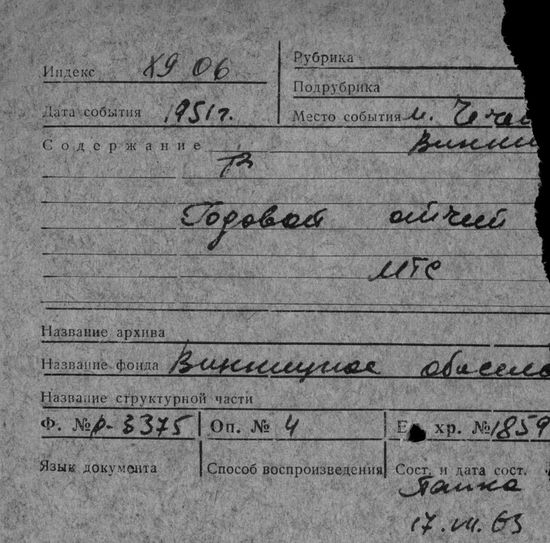 Индекс X9 06
Рубрика
Подрубрика
Дата события 1951г.
Место события м. Чече
Содержание Винни
Годовой отчет
МТС
Название архива
Название фонда Винницкое
Название структурной части
Ф. № р-3375 Оп. № 4 Ед. хр. № 1859
Язык документа Способ воспроизведения Сост. и дата сост.
17.VII.63